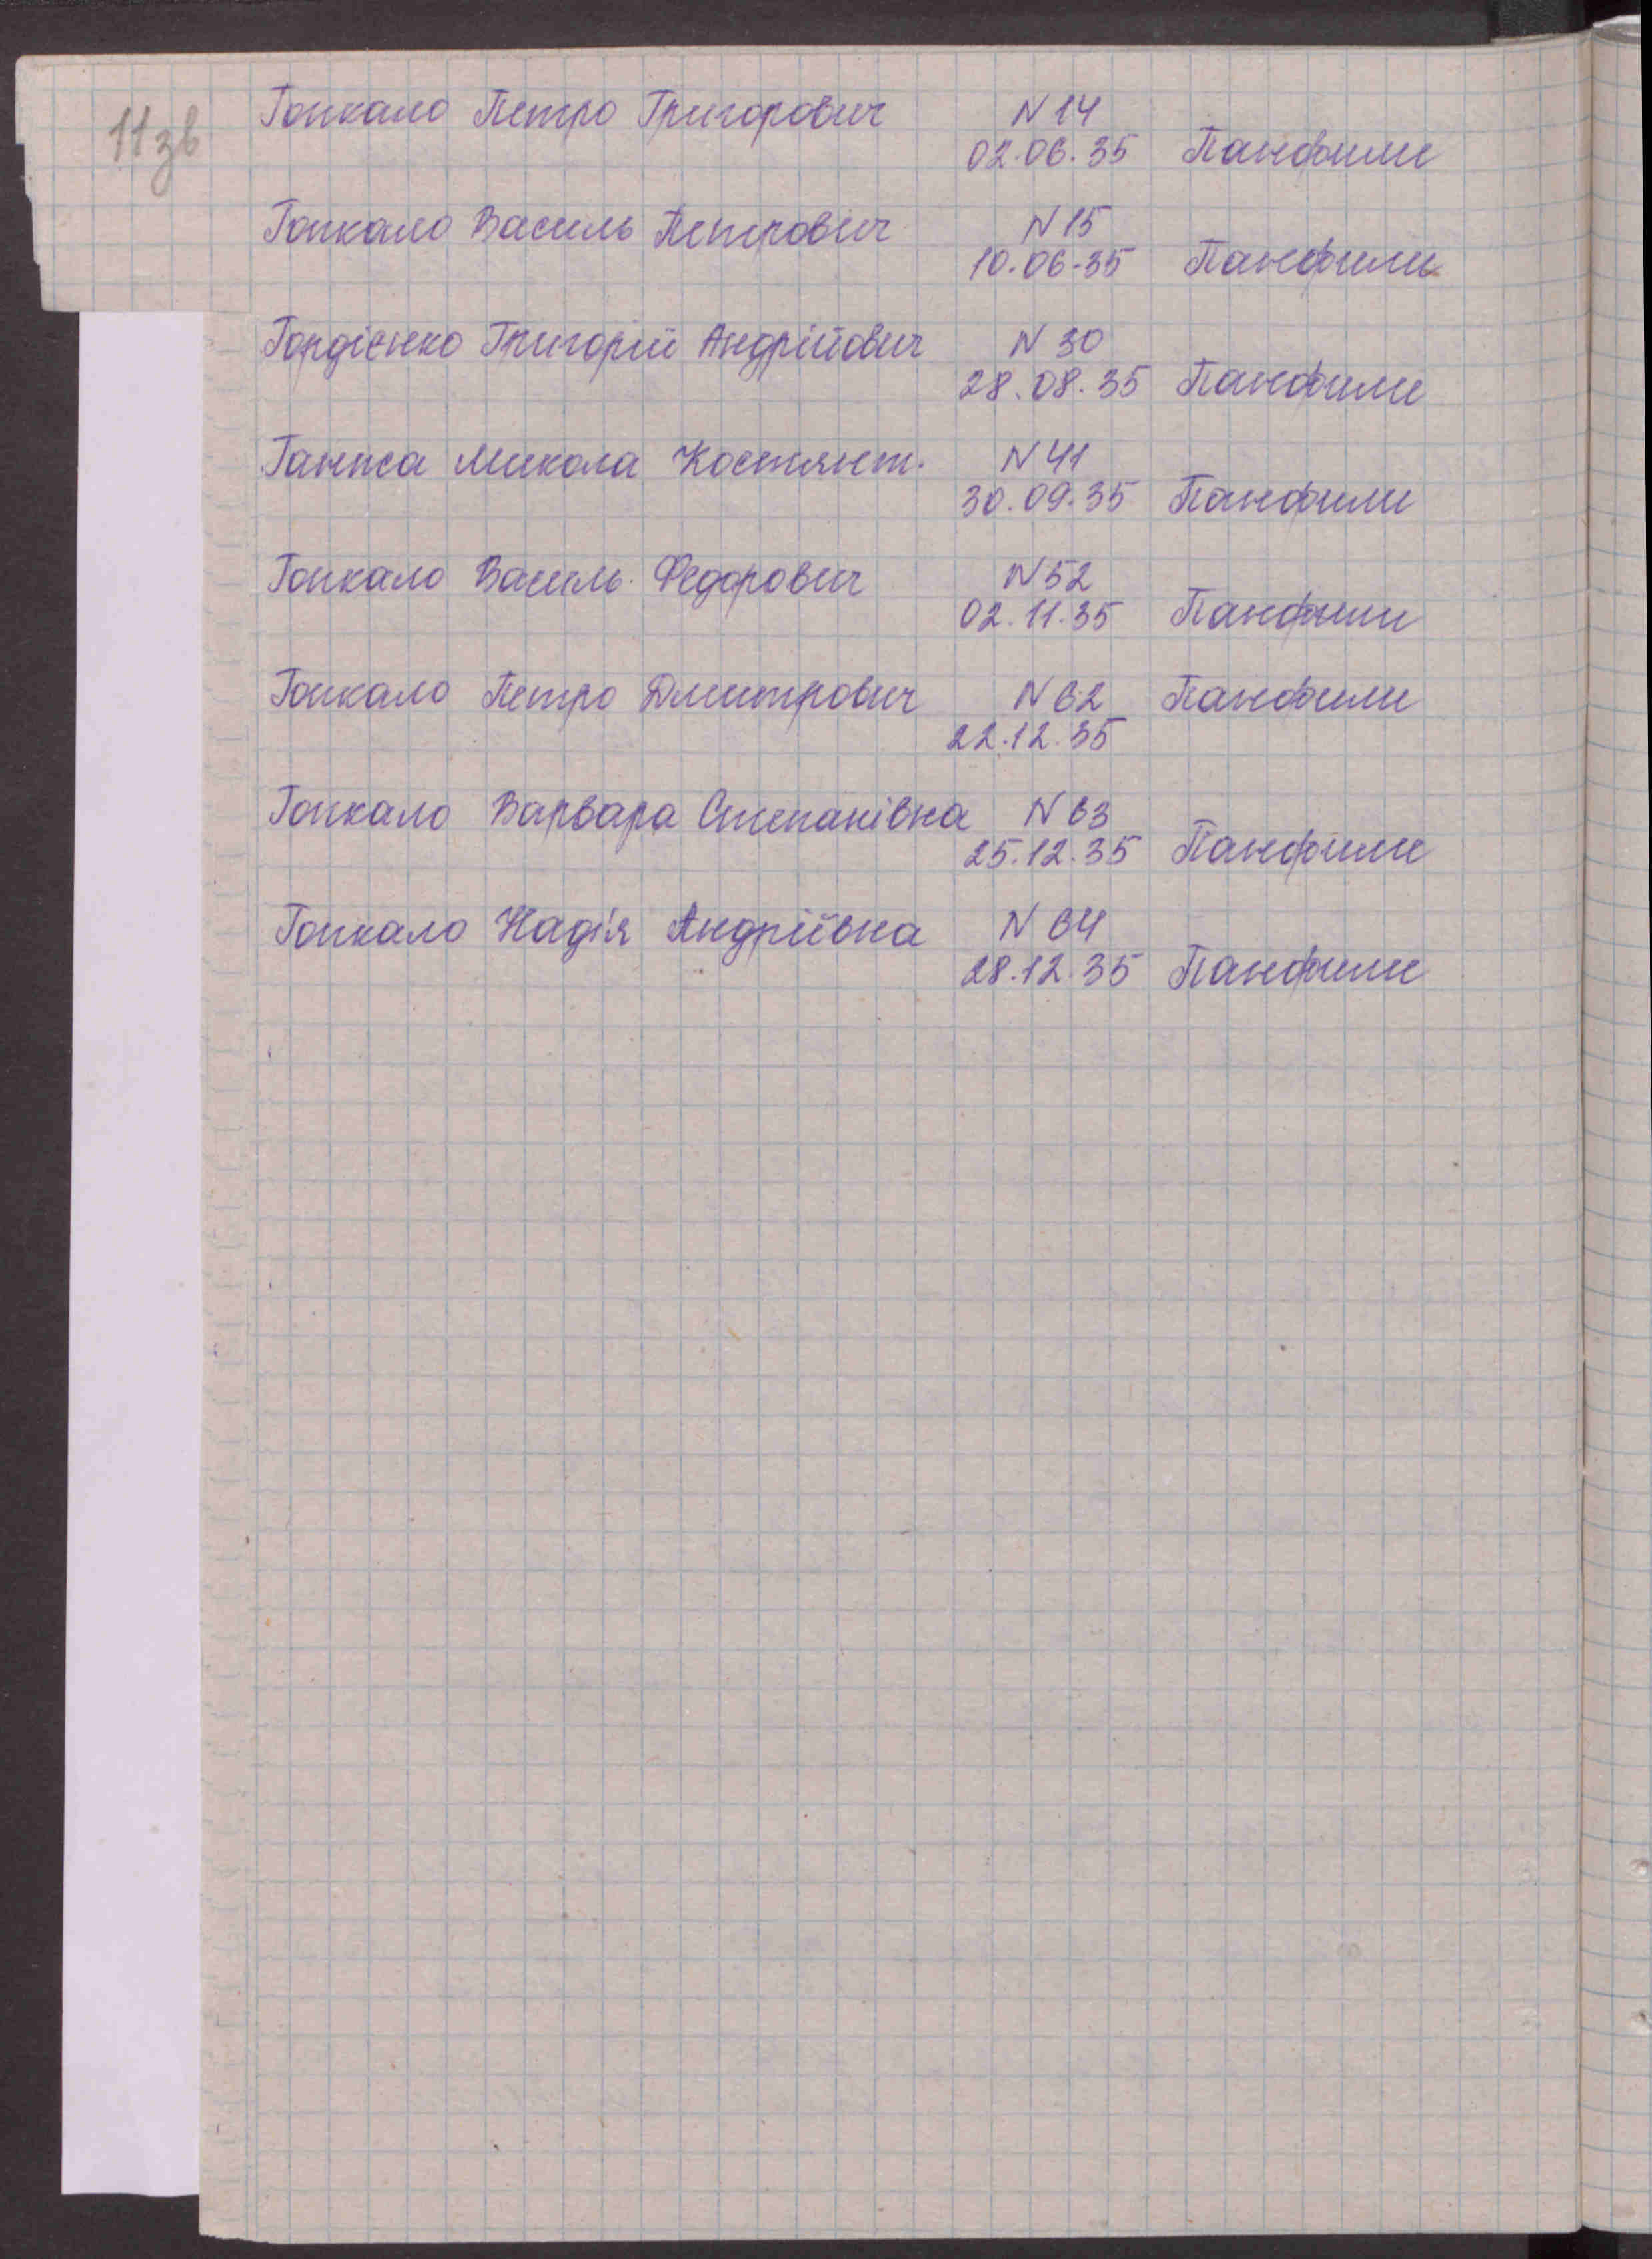 11зв
Гопкало Петро Григорович N 14
02.06.35 Панфили
Гопкало Василь Петрович N 15
10.06-35 Панфили
Гордієнко Григорій Андрійович N 30
28.08.35 Панфили
Микола Костянт. N 41
30.09.35 Панфили
Гопкало Василь Федорович N 52
02.11.35 Панфили
Гопкало Петро Дмитрович N 62 Панфили
22.12.35
Гопкало Варвара Степанівна N 63
25.12.35 Панфили
Гопкало Надія Андріївна N 64
28.12.35 Панфили